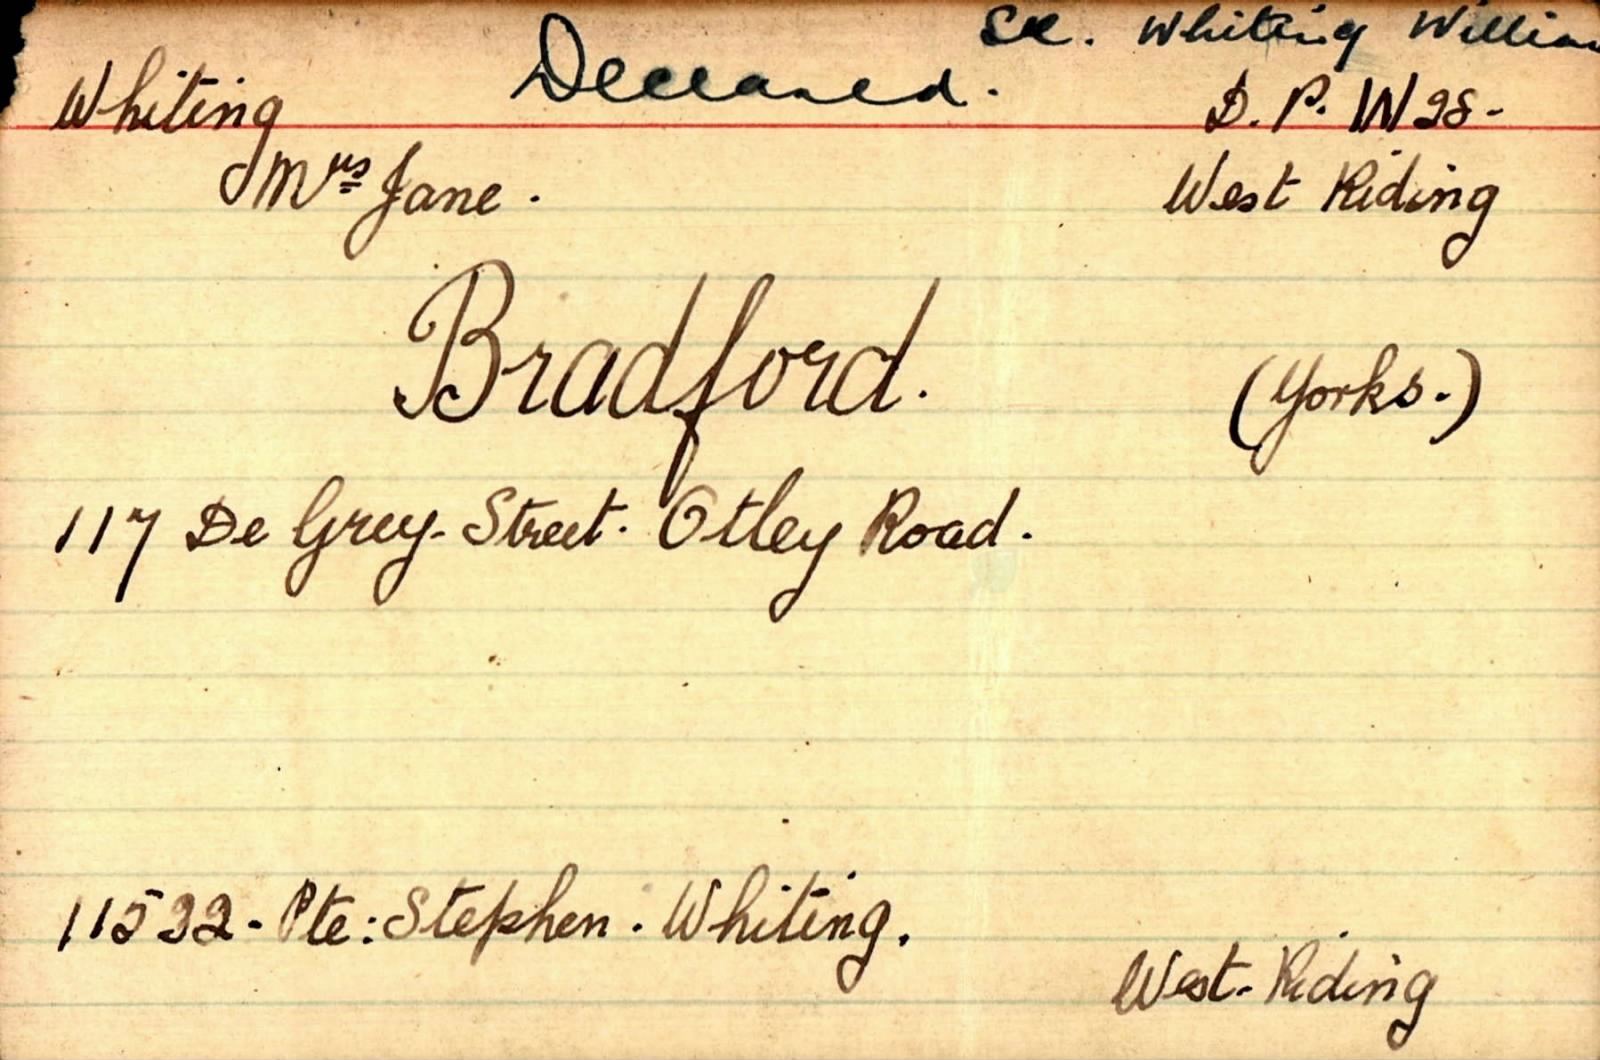 See. Whiting William
Deceased.
Whiting
D. P. W 28-
Mrs Jane.
West Riding
Bradford.
(Yorks.)
117 De Grey. Street. Otley Road.
11522- Pte: Stephen. Whiting.
West. Riding